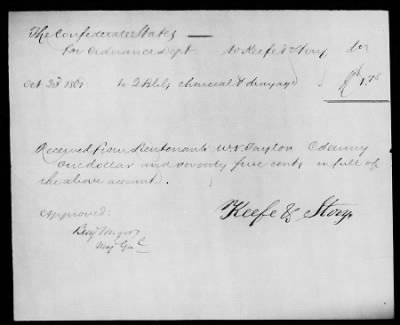 The Confederate States
for Ordnance Dept. to Keefe & Story Dr
Oct 23d 1861 to 2 Bbls charcoal & drayage $ 1.75
Received from Lieutenant W. N. Taylor
One dollar and seventy five cents in full of
the above account.
Approved:
Benj Huger
Maj Genl
Keefe & Story